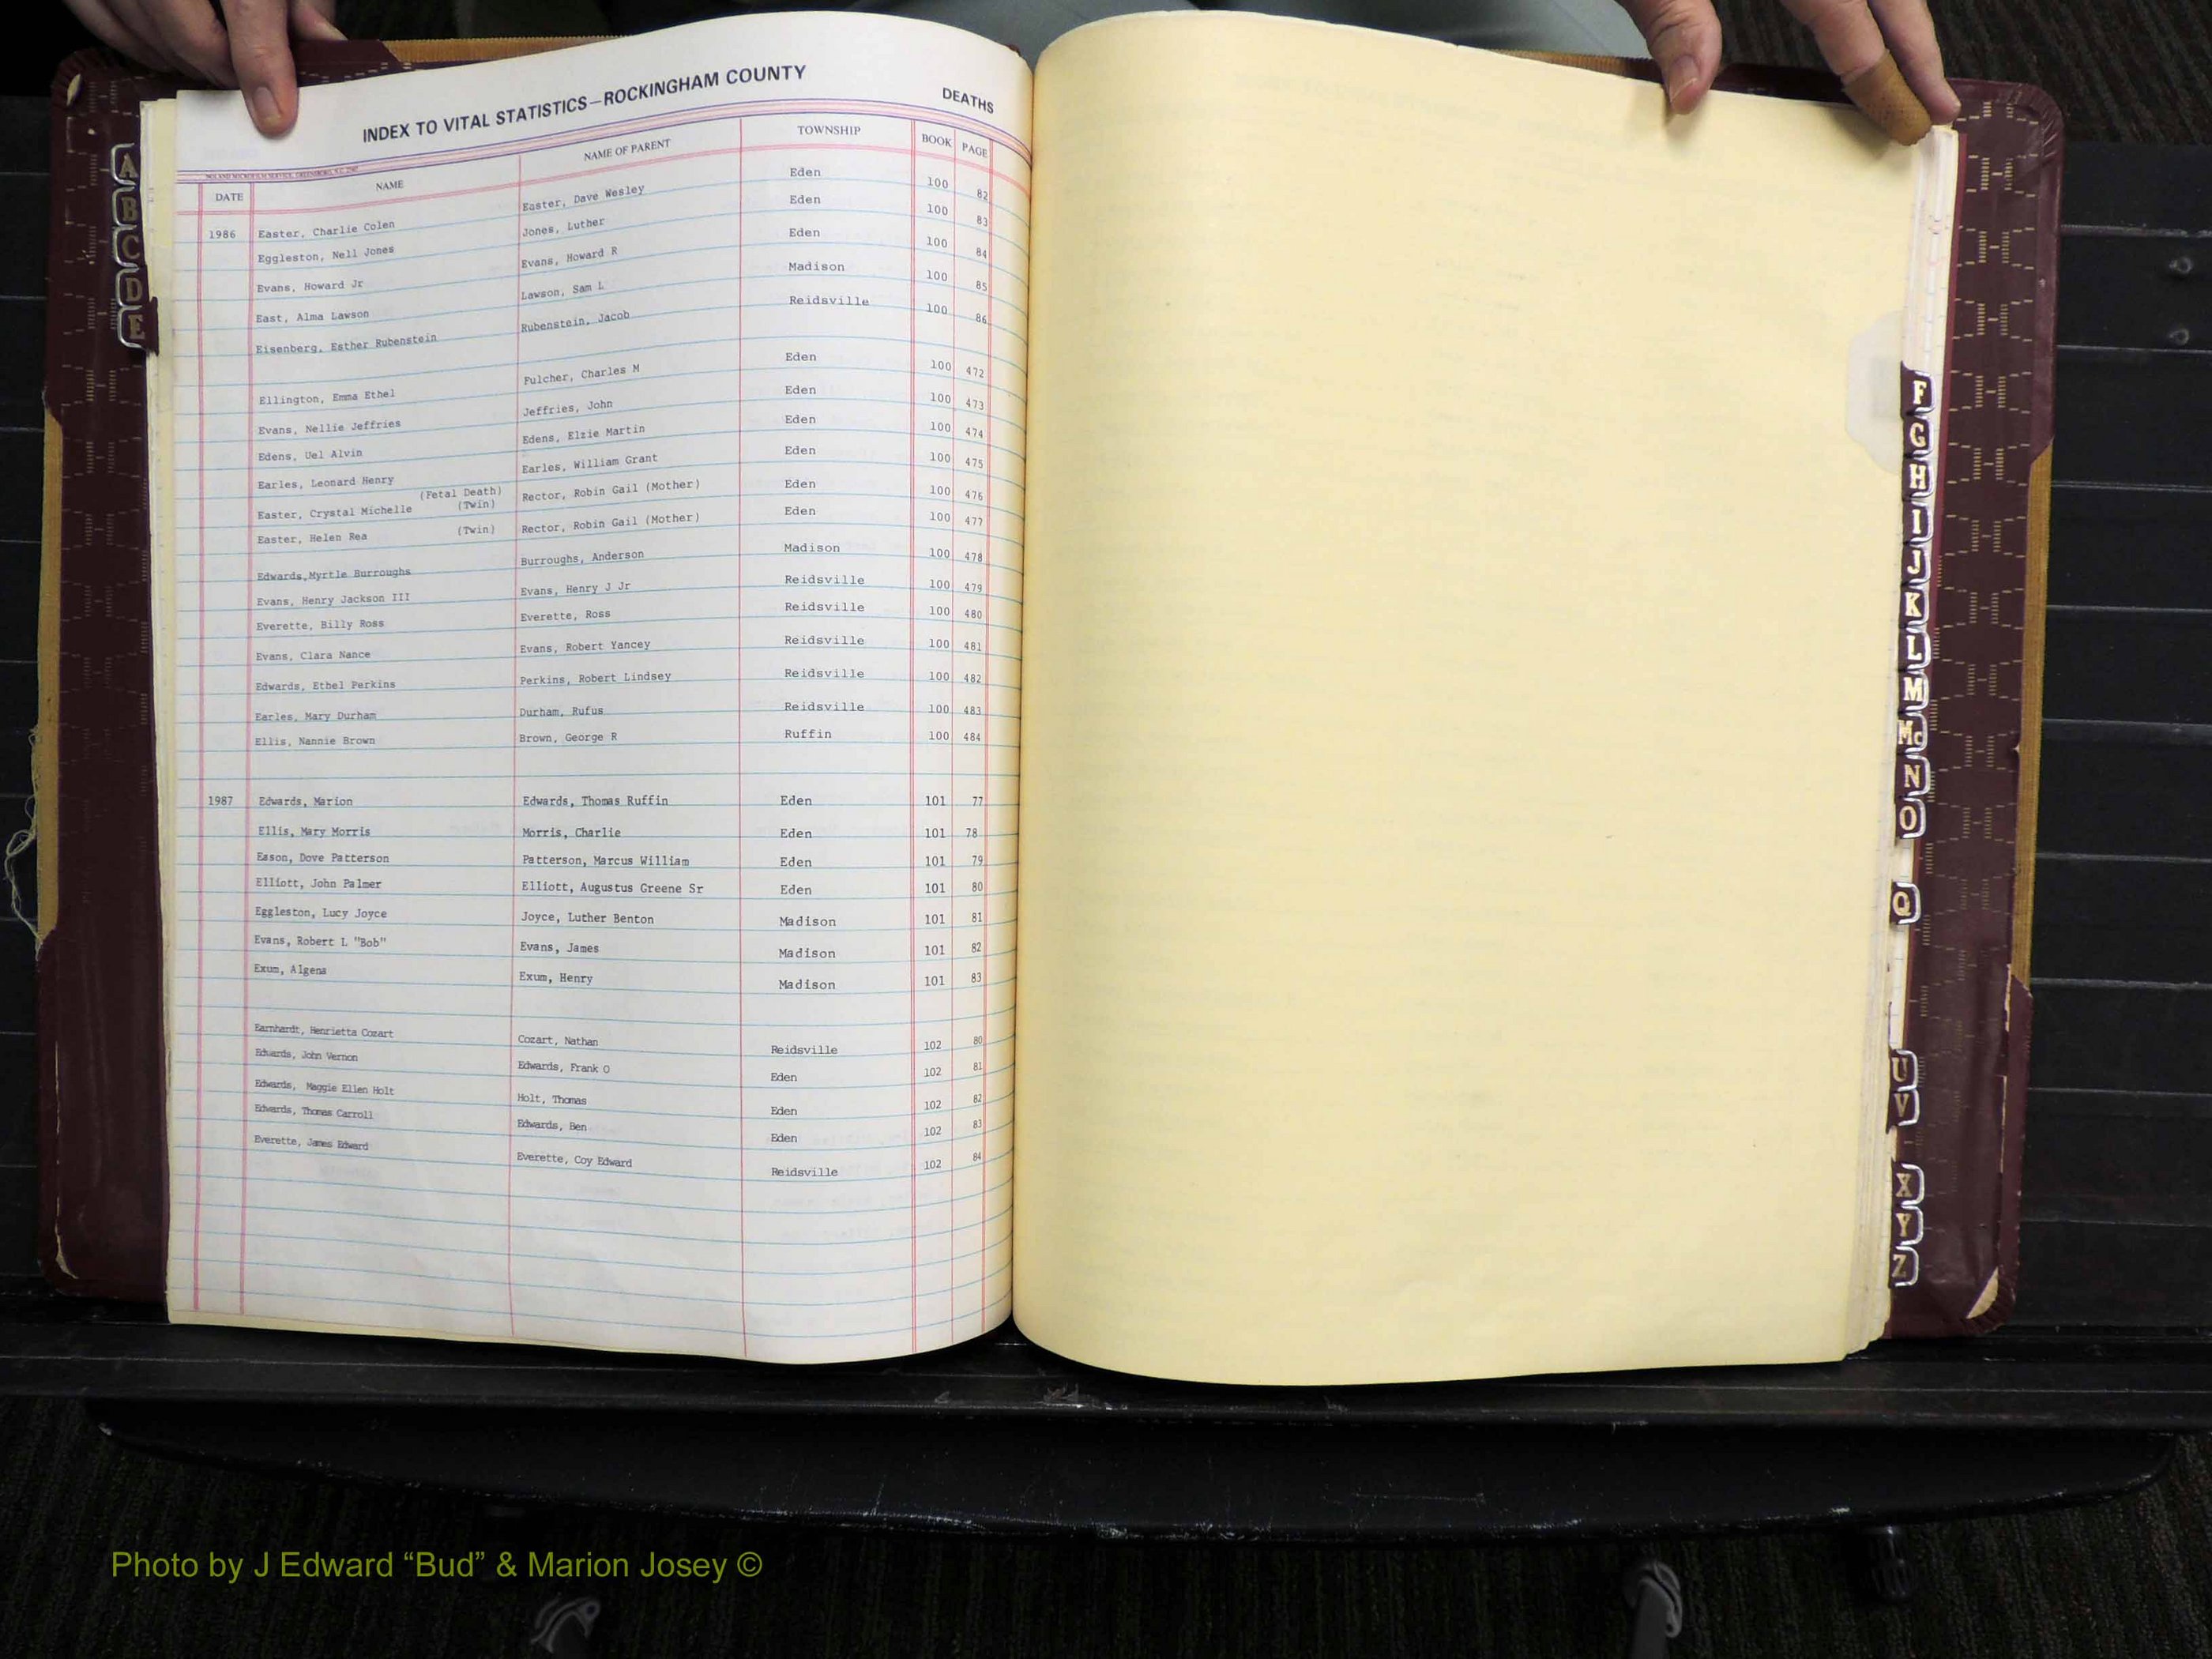 INDEX TO VITAL STATISTICS—ROCKINGHAM COUNTY
DEATHS
DATE NAME NAME OF PARENT TOWNSHIP BOOK PAGE
1986 Easter, Charlie Colen Easter, Dave Wesley Eden 100 82
Eggleston, Nell Jones Jones, Luther Eden 100 83
Evans, Howard Jr Evans, Howard R Eden 100 84
East, Alma Lawson Lawson, Sam L Madison 100 85
Eisenberg, Esther Rubenstein Rubenstein, Jacob Reidsville 100 86
Ellington, Emma Ethel Fulcher, Charles M Eden 100 472
Evans, Nellie Jeffries Jeffries, John Eden 100 473
Edens, Uel Alvin Edens, Elzie Martin Eden 100 474
Earles, Leonard Henry Earles, William Grant Eden 100 475
(Fetal Death)
Easter, Crystal Michelle (Twin) Rector, Robin Gail (Mother) Eden 100 476
Easter, Helen Rea (Twin) Rector, Robin Gail (Mother) Eden 100 477
Edwards,Myrtle Burroughs Burroughs, Anderson Madison 100 478
Evans, Henry Jackson III Evans, Henry J Jr Reidsville 100 479
Everette, Billy Ross Everette, Ross Reidsville 100 480
Evans, Clara Nance Evans, Robert Yancey Reidsville 100 481
Edwards, Ethel Perkins Perkins, Robert Lindsey Reidsville 100 482
Earles, Mary Durham Durham, Rufus Reidsville 100 483
Ellis, Nannie Brown Brown, George R Ruffin 100 484
1987 Edwards, Marion Edwards, Thomas Ruffin Eden 101 77
Ellis, Mary Morris Morris, Charlie Eden 101 78
Eason, Dove Patterson Patterson, Marcus William Eden 101 79
Elliott, John Palmer Elliott, Augustus Greene Sr Eden 101 80
Eggleston, Lucy Joyce Joyce, Luther Benton Madison 101 81
Evans, Robert L "Bob" Evans, James Madison 101 82
Exum, Algena Exum, Henry Madison 101 83
Earnhardt, Henrietta Cozart Cozart, Nathan Reidsville 102 80
Edwards, John Vernon Edwards, Frank O Eden 102 81
Edwards, Maggie Ellen Holt Holt, Thomas Eden 102 82
Edwards, Thomas Carroll Edwards, Ben Eden 102 83
Everette, James Edward Everette, Coy Edward Reidsville 102 84
A
B
C
D
E
F
G
H
I
J
K
L
M
Mc
N
O
Q
U
V
X
Y
Z
Photo by J Edward “Bud” & Marion Josey ©